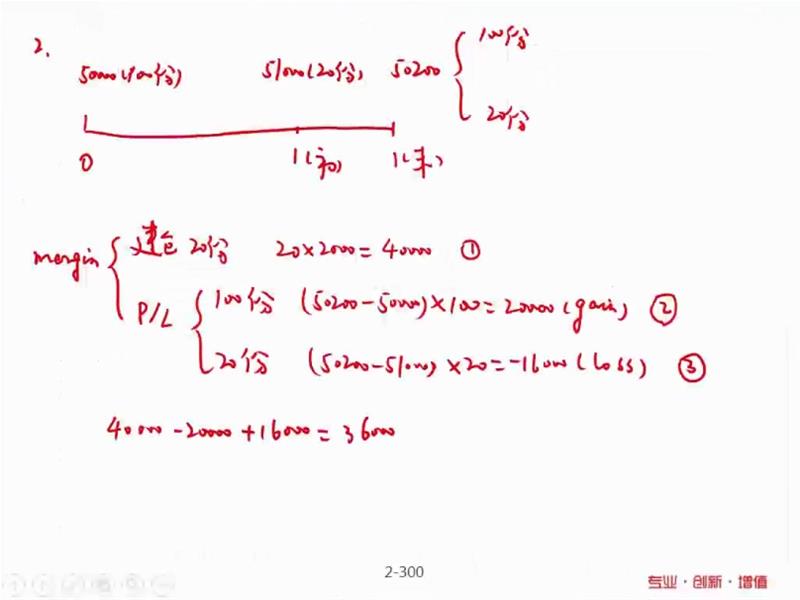 2.
50000(100份) 51000(20份) 50200 { 100份
20份
0 1(初) 1(末)
margin { 建仓 20份 20×2000=40000 ①
P/L { 100份 (50200-50000)×100=20000(gain) ②
20份 (50200-51000)×20=-16000(loss) ③
40000-20000+16000=36000
2-300
专业·创新·增值